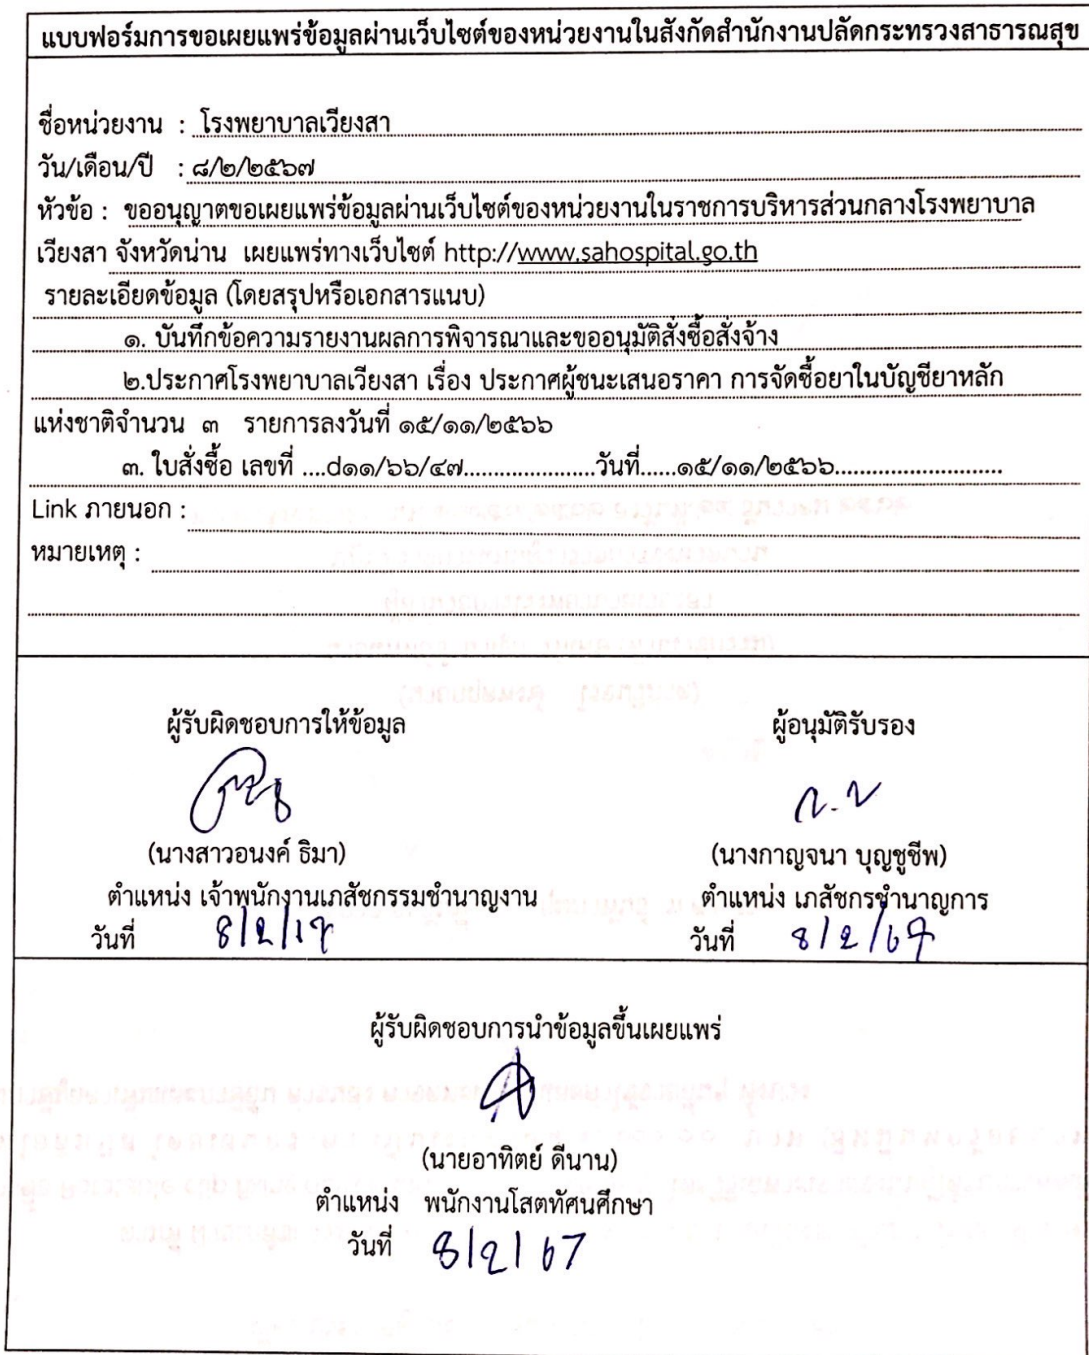 แบบฟอร์มการขอเผยแพร่ข้อมูลผ่านเว็บไซต์ของหน่วยงานในสังกัดสำนักงานปลัดกระทรวงสาธารณสุข
ชื่อหน่วยงาน : โรงพยาบาลเวียงสา
วัน/เดือน/ปี : ๘/๒/๒๕๖๗
หัวข้อ : ขออนุญาตขอเผยแพร่ข้อมูลผ่านเว็บไซต์ของหน่วยงานในราชการบริหารส่วนกลางโรงพยาบาล
เวียงสา จังหวัดน่าน เผยแพร่ทางเว็บไซต์ http://www.sahospital.go.th
รายละเอียดข้อมูล (โดยสรุปหรือเอกสารแนบ)
๑. บันทึกข้อความรายงานผลการพิจารณาและขออนุมัติสั่งซื้อสั่งจ้าง
๒.ประกาศโรงพยาบาลเวียงสา เรื่อง ประกาศผู้ชนะเสนอราคา การจัดซื้อยาในบัญชียาหลัก
แห่งชาติจำนวน ๓ รายการลงวันที่ ๑๕/๑๑/๒๕๖๖
๓. ใบสั่งซื้อ เลขที่ ....d๑๑/๖๖/๔๗......................วันที่......๑๕/๑๑/๒๕๖๖............................
Link ภายนอก :
หมายเหตุ :
ผู้รับผิดชอบการให้ข้อมูล ผู้อนุมัติรับรอง
(นางสาวอนงค์ ธิมา) (นางกาญจนา บุญชูชีพ)
ตำแหน่ง เจ้าพนักงานเภสัชกรรมชำนาญงาน ตำแหน่ง เภสัชกรชำนาญการ
วันที่ วันที่ 8/2/67
ผู้รับผิดชอบการนำข้อมูลขึ้นเผยแพร่
(นายอาทิตย์ ดีนาน)
ตำแหน่ง พนักงานโสตทัศนศึกษา
วันที่ 8/2/67